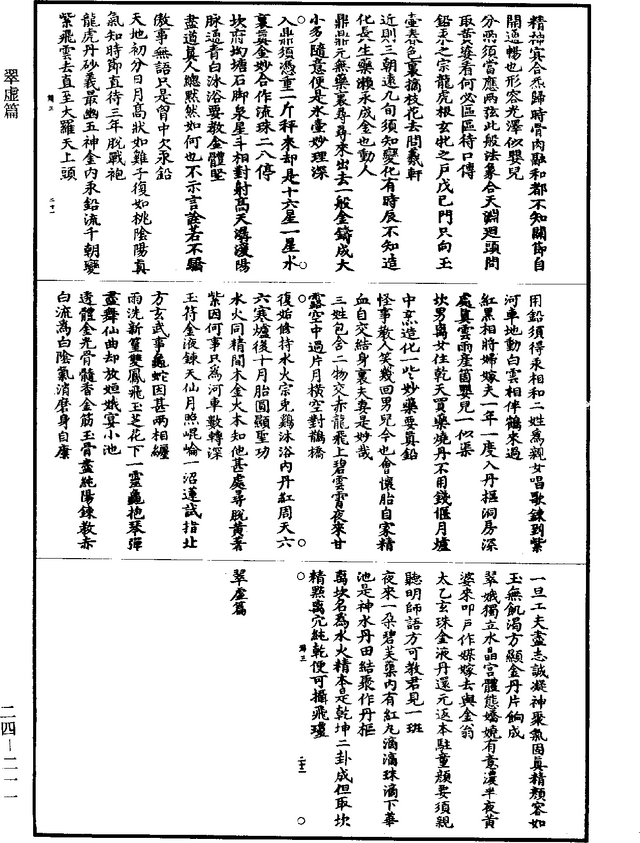 精神冥合炁歸時骨肉融和都不知關節自
開通暢也形容光澤似嬰兒
分兩須當應兩弦此般法象合天淵迴頭問
取黃婆看何必區區待口傳
鉛汞之宗龍虎根玄牝之戶戊己門只向玉
壺春色裏摘枝花去問羲軒
近則三朝遠九旬須知變化有時辰不知造
化長生藥瀨永成金也動人
鼎鼎元無藥裏尋尋來出去一般金鑄成大
小多隨意便是水壺妙理深
入鼎須憑重一斤秤來却是十六星一星水
裏真金妙合作流珠二八停
坎府坳塘石脚泉星斗相對射高天潺湲陽
脉通青白沐浴要教金體堅
盡道真人總默然如何也不示言詮若不驕
傲事無語只是胷中欠汞鉛
天地初分日月高狀如雞子復如桃陰陽真
氣知時節直待三年脫戰袍
龍虎丹砂義最幽五神金內汞鉛流千朝變
紫飛雲去直至大羅天上頭
用鉛須得汞相和二姓為親女唱歌鍊到紫
河車地動白雲相伴鶴來過
紅黑相將婦嫁夫一年一度入丹樞洞房深
處真雲雨產箇嬰兒一似渠
坎男離女住乾天買藥燒丹不用錢偃月爐
中烹造化一些些妙藥要真鉛
怪事教人笑幾回男兒今也會懷胎自家精
血自交結身裏夫妻是妙哉
三姓包合二物交赤龍飛上碧雲霄夜來甘
露空中過片月橫空對鵲橋
復始修持水火宗兔鷄沐浴內丹紅周天六
六寒爐後十月胎圓顯聖功
水火同精間木金火木知他甚處尋脫黃著
紫因何事只為河車數轉深
玉符金液鍊天仙月照崐崘一沼蓮試指北
方玄武事龜蛇因甚兩相纏
雨洗新篁雙鳳飛玉芝花下一靈龜抱琴彈
盡舞仙曲却放姮娥宴小池
透體金光骨髓香金筋玉骨盡純陽鍊教赤
白流為白陰氣消磨身自康
一旦工夫盡志誠凝神聚氣固真精顏容如
玉無飢渴方顯金丹片餉成
翠娥獨立水晶宮體態嬌嬈有意濃半夜黃
婆來叩戶作媒嫁去與金翁
太乙玄珠金液丹還元返本駐童顏要須親
聽明師語方可教君見一斑
夜來一朵碧芙蕖內有紅丸滴滴珠滴下華
池是神水丹田結聚作丹樞
离坎名為水火精本是乾坤二卦成但取坎
精點离穴純乾便可攝飛瓊
翠虛篇
翠虛篇
二四-二一一